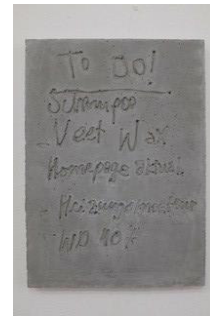 To Do!
Schampoo
- Veet Wax
Homepage aktual.
- Heizungsmonteur
- WD 40 !